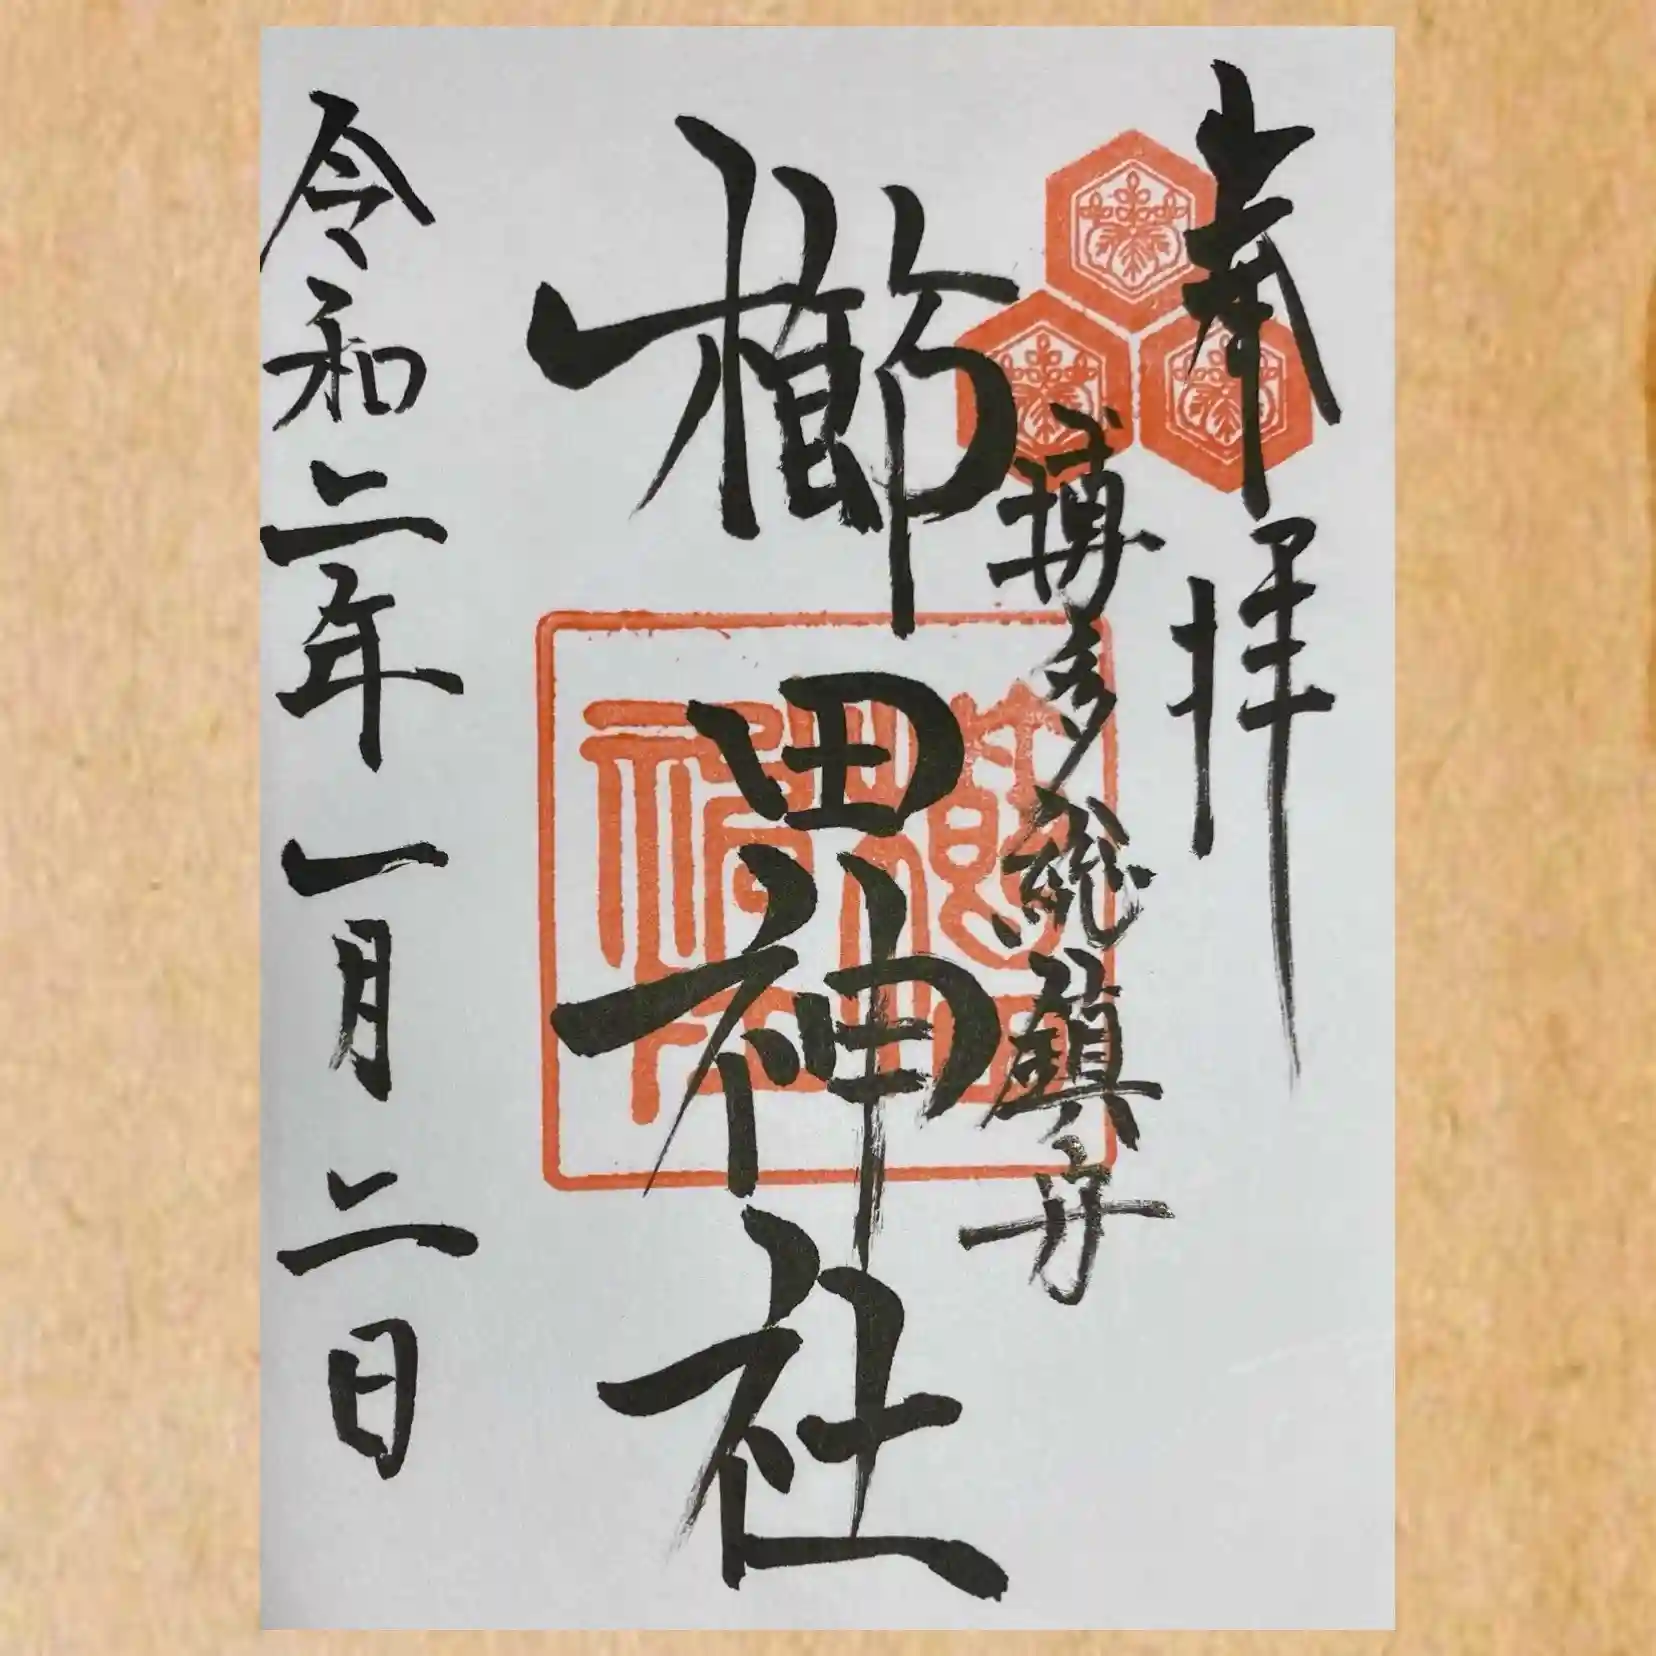 奉拝
博多総鎮守
櫛田神社
櫛田神社
令和二年一月二日